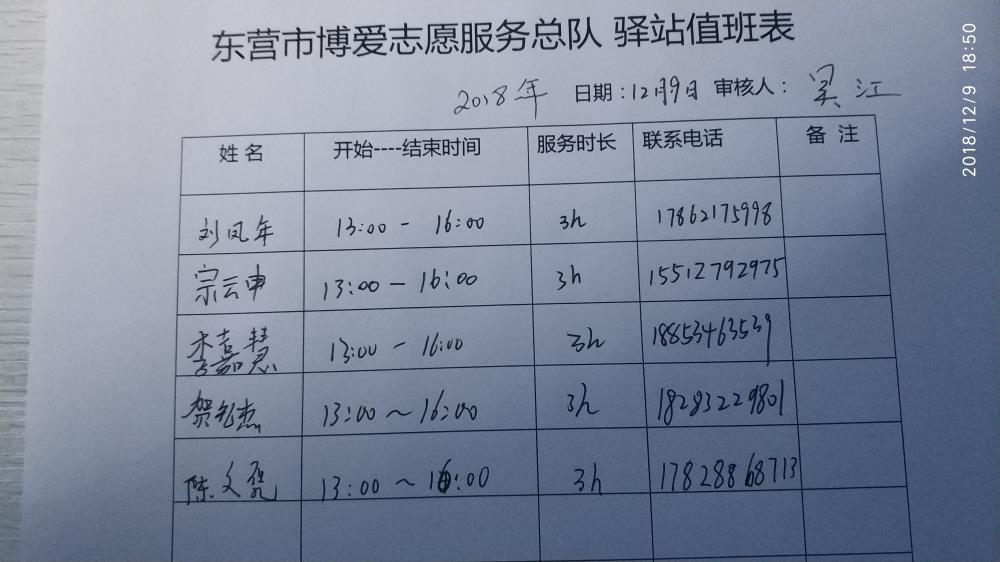 东营市博爱志愿服务总队 驿站值班表
2018年 日期:12月9日 审核人: 吴江
2018/12/9 18:50
姓名 开始----结束时间 服务时长 联系电话 备注
刘凤年 13:00 - 16:00 3h 17862175998
宗云申 13:00 - 16:00 3h 15512792975
李嘉慧 13:00 - 16:00 3h 18853463539
贺 杰 13:00 ~ 16:00 3h 18283229801
陈文 13:00 ~ 16:00 3h 17828868713